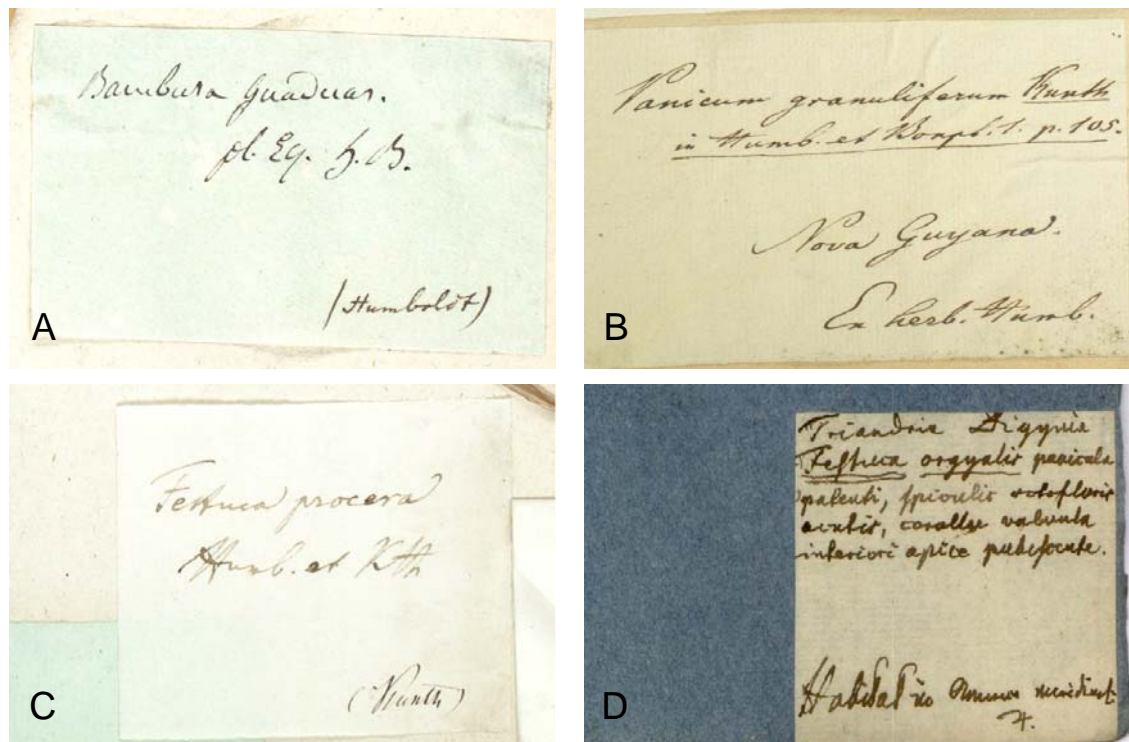 Bambusa Guaduas.
pl. Eq. H. B.
(Humboldt)
A
Panicum granuliferum Kunth
in Humb. et Bonpl. 1. p. 105.
Nova Guyana.
Ex herb. Humb.
B
Festuca procera
Humb. et Kth
(Kunth)
C
Triandria Digynia
Festuca orgyalis panicula
patenti, spiculis octofloris
acutis, corollae valvula
inferiori apice pubescente.
Habitat in meridionali
D